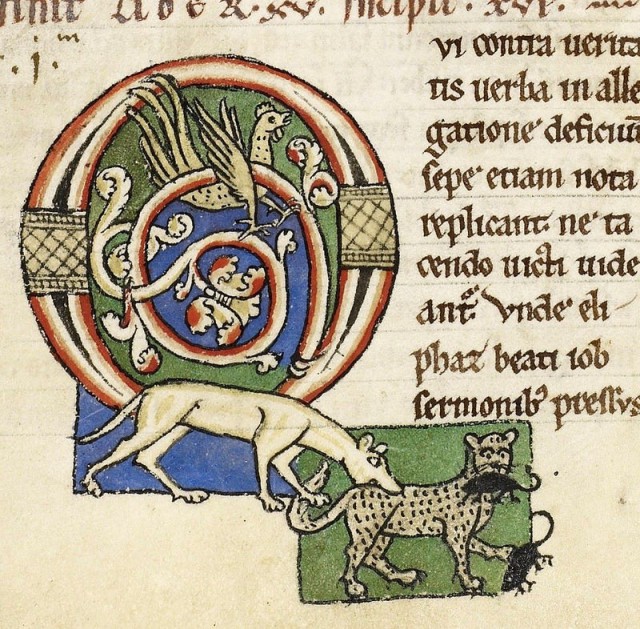 finit lib
·j·m
Q
vi contra uerita
tis uerba in alle
gatione deficiūt
sepe etiam nota
replicant ne ta
cendo uicti uide
antr̄. Vnde eli
phaz beati iob
sermonibꝰ pressus